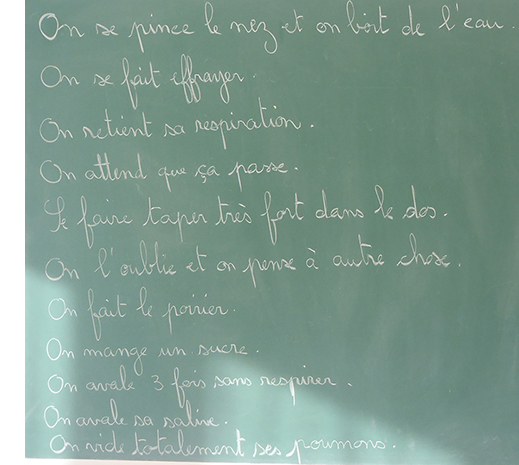 On se pince le nez et on boit de l'eau.
On se fait effrayer.
On retient sa respiration.
On attend que ça passe.
Se faire taper très fort dans le dos.
On l'oublie et on pense à autre chose.
On fait le poirier.
On mange un sucre.
On avale 3 fois sans respirer.
On avale sa salive.
On vide totalement ses poumons.